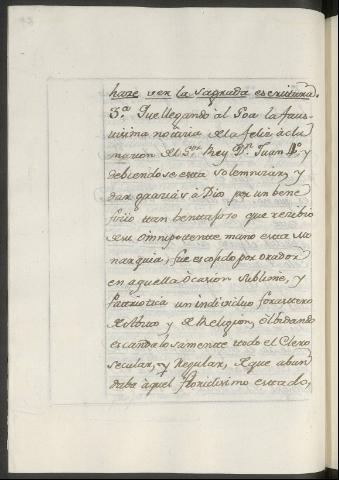 haze ver en la Sagrada escritura.
3.ª Que llegando âl Goa la faus-
tissima noticia de la feliz aclam
macion de el S.or Rey D.n Juan IV.o, y
debiendose esta solemnizar, y
dar gracias à Dio por un bene
ficio tan benta joso que recibio
de su omnipotente mano esta Mo
narquia, fue escojido por orador
en aquella Ocasion Sublime, y
Patriotica un individuo forastero
de Abito y de Religion, olbidando
escandalosamente todo el Clero
secular, y Regular, de que abun
daba aquel floridissimo estado,